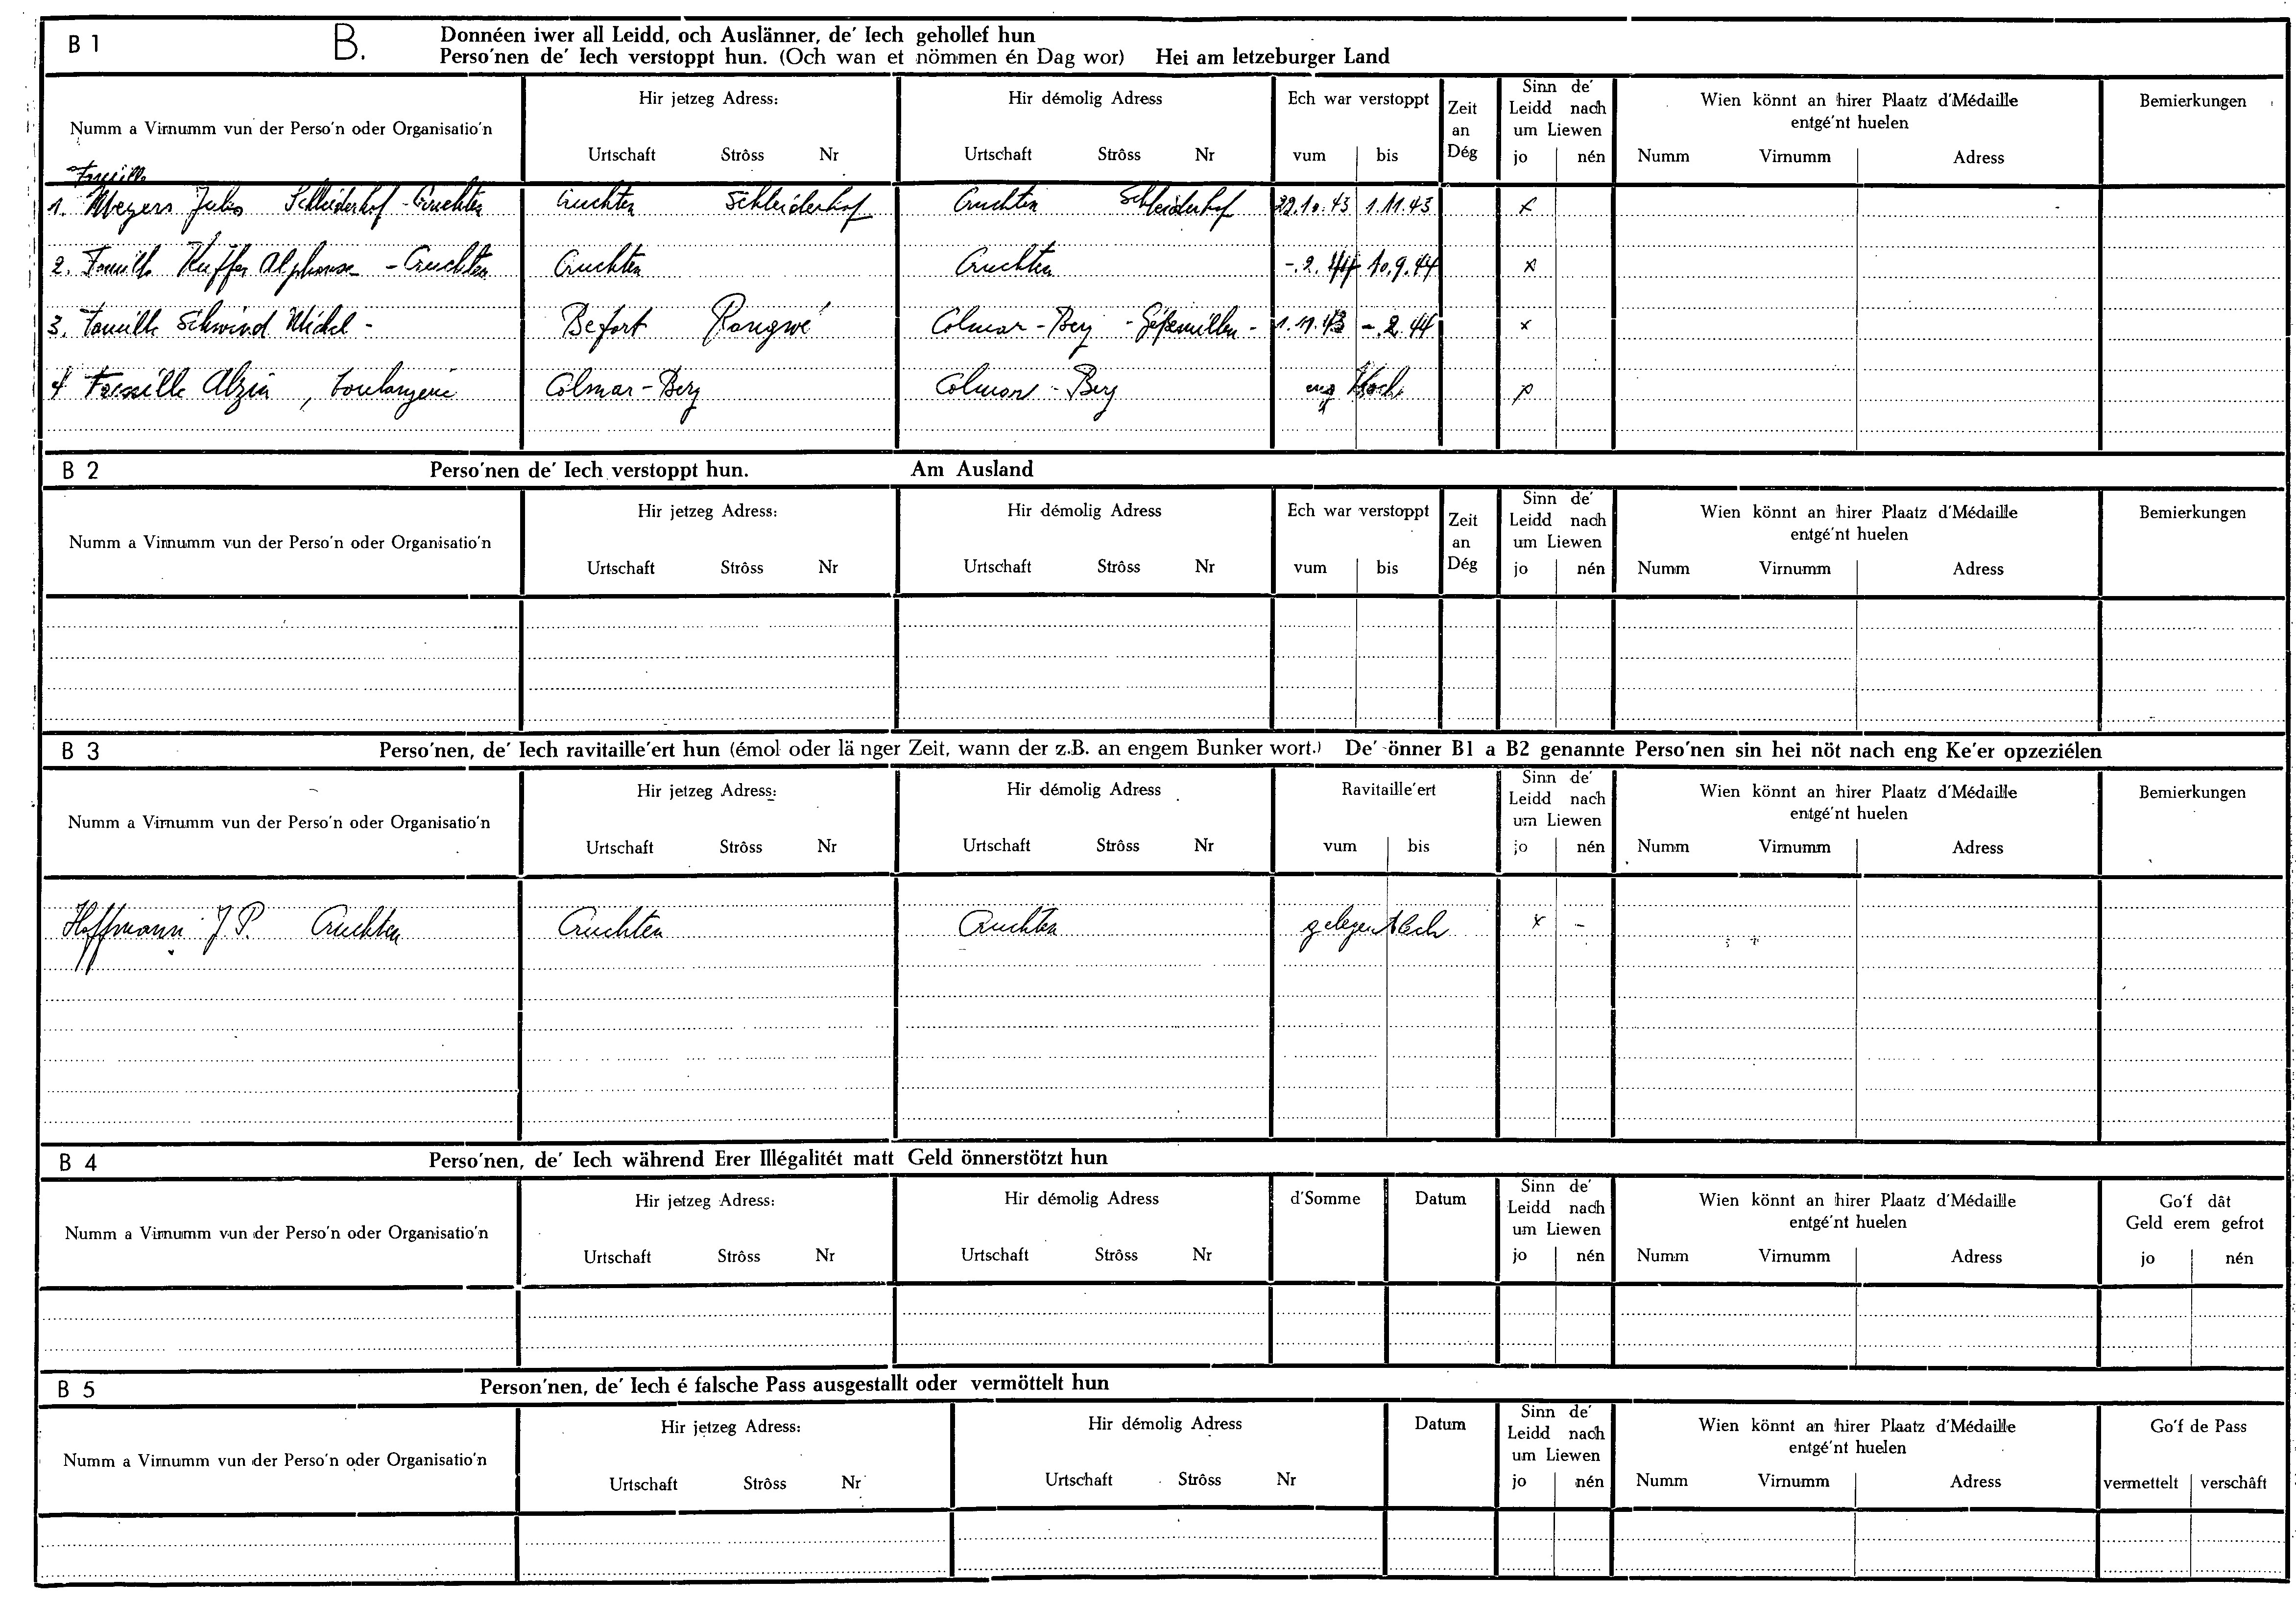 B 1 B. Donnéen iwer all Leidd, och Auslänner, de' Iech gehollef hun
Perso'nen de' Iech verstoppt hun. (Och wan et nömmen én Dag wor) Hei am letzeburger Land
Numm a Virnumm vun der Perso'n oder Organisatio'n
Hir jetzeg Adress: Urtschaft Strôss Nr
Hir démolig Adress Urtschaft Strôss Nr
Ech war verstoppt vum bis
Zeit an Dég
Sinn de' Leidd nach um Liewen jo nén
Wien könnt an hirer Plaatz d'Médaille entgé'nt huelen
Numm Virnumm Adress
Bemierkungen
Famille
1. Meyers Jules Schleiderhof - Cruchten Cruchten Schleiderhof Cruchten Schleiderhof 22.10.43 1.11.43 x
2. Famille Kuffer Alphonse - Cruchten Cruchten Cruchten -.2.44 10.9.44 x
3. Famille Schwind Michel - Befort Colmar - Berg - 1.11.43 -.2.44 x
4 Famille Alzin, boulangerie Colmar-Berg Colmar-Berg eng Woch x
B 2 Perso'nen de' Iech verstoppt hun. Am Ausland
Numm a Virnumm vun der Perso'n oder Organisatio'n
Hir jetzeg Adress: Urtschaft Strôss Nr
Hir démolig Adress Urtschaft Strôss Nr
Ech war verstoppt vum bis
Zeit an Dég
Sinn de' Leidd nach um Liewen jo nén
Wien könnt an hirer Plaatz d'Médaille entgé'nt huelen
Numm Virnumm Adress
Bemierkungen
B 3 Perso'nen, de' Iech ravitaille'ert hun (émol oder länger Zeit, wann der z.B. an engem Bunker wort.) De' önner B1 a B2 genannte Perso'nen sin hei nöt nach eng Ke'er opzeziélen
Numm a Virnumm vun der Perso'n oder Organisatio'n
Hir jetzeg Adress: Urtschaft Strôss Nr
Hir démolig Adress Urtschaft Strôss Nr
Ravitaille'ert vum bis
Sinn de' Leidd nach um Liewen jo nén
Wien könnt an hirer Plaatz d'Médaille entgé'nt huelen
Numm Virnumm Adress
Bemierkungen
Hoffmann J.P. Cruchten Cruchten Cruchten gelegentlech x -
B 4 Perso'nen, de' Iech während Erer Illégalitét matt Geld önnerstötzt hun
Numm a Virnumm vun der Perso'n oder Organisatio'n
Hir jetzeg Adress: Urtschaft Strôss Nr
Hir démolig Adress Urtschaft Strôss Nr
d'Somme
Datum
Sinn de' Leidd nach um Liewen jo nén
Wien könnt an hirer Plaatz d'Médaille entgé'nt huelen
Numm Virnumm Adress
Go'f dât Geld erem gefrot jo nén
B 5 Person'nen, de' Iech é falsche Pass ausgestallt oder vermöttelt hun
Numm a Virnumm vun der Perso'n oder Organisatio'n
Hir jetzeg Adress: Urtschaft Strôss Nr
Hir démolig Adress Urtschaft Strôss Nr
Datum
Sinn de' Leidd nach um Liewen jo nén
Wien könnt an hirer Plaatz d'Médaille entgé'nt huelen
Numm Virnumm Adress
Go'f de Pass vermettelt verschâft